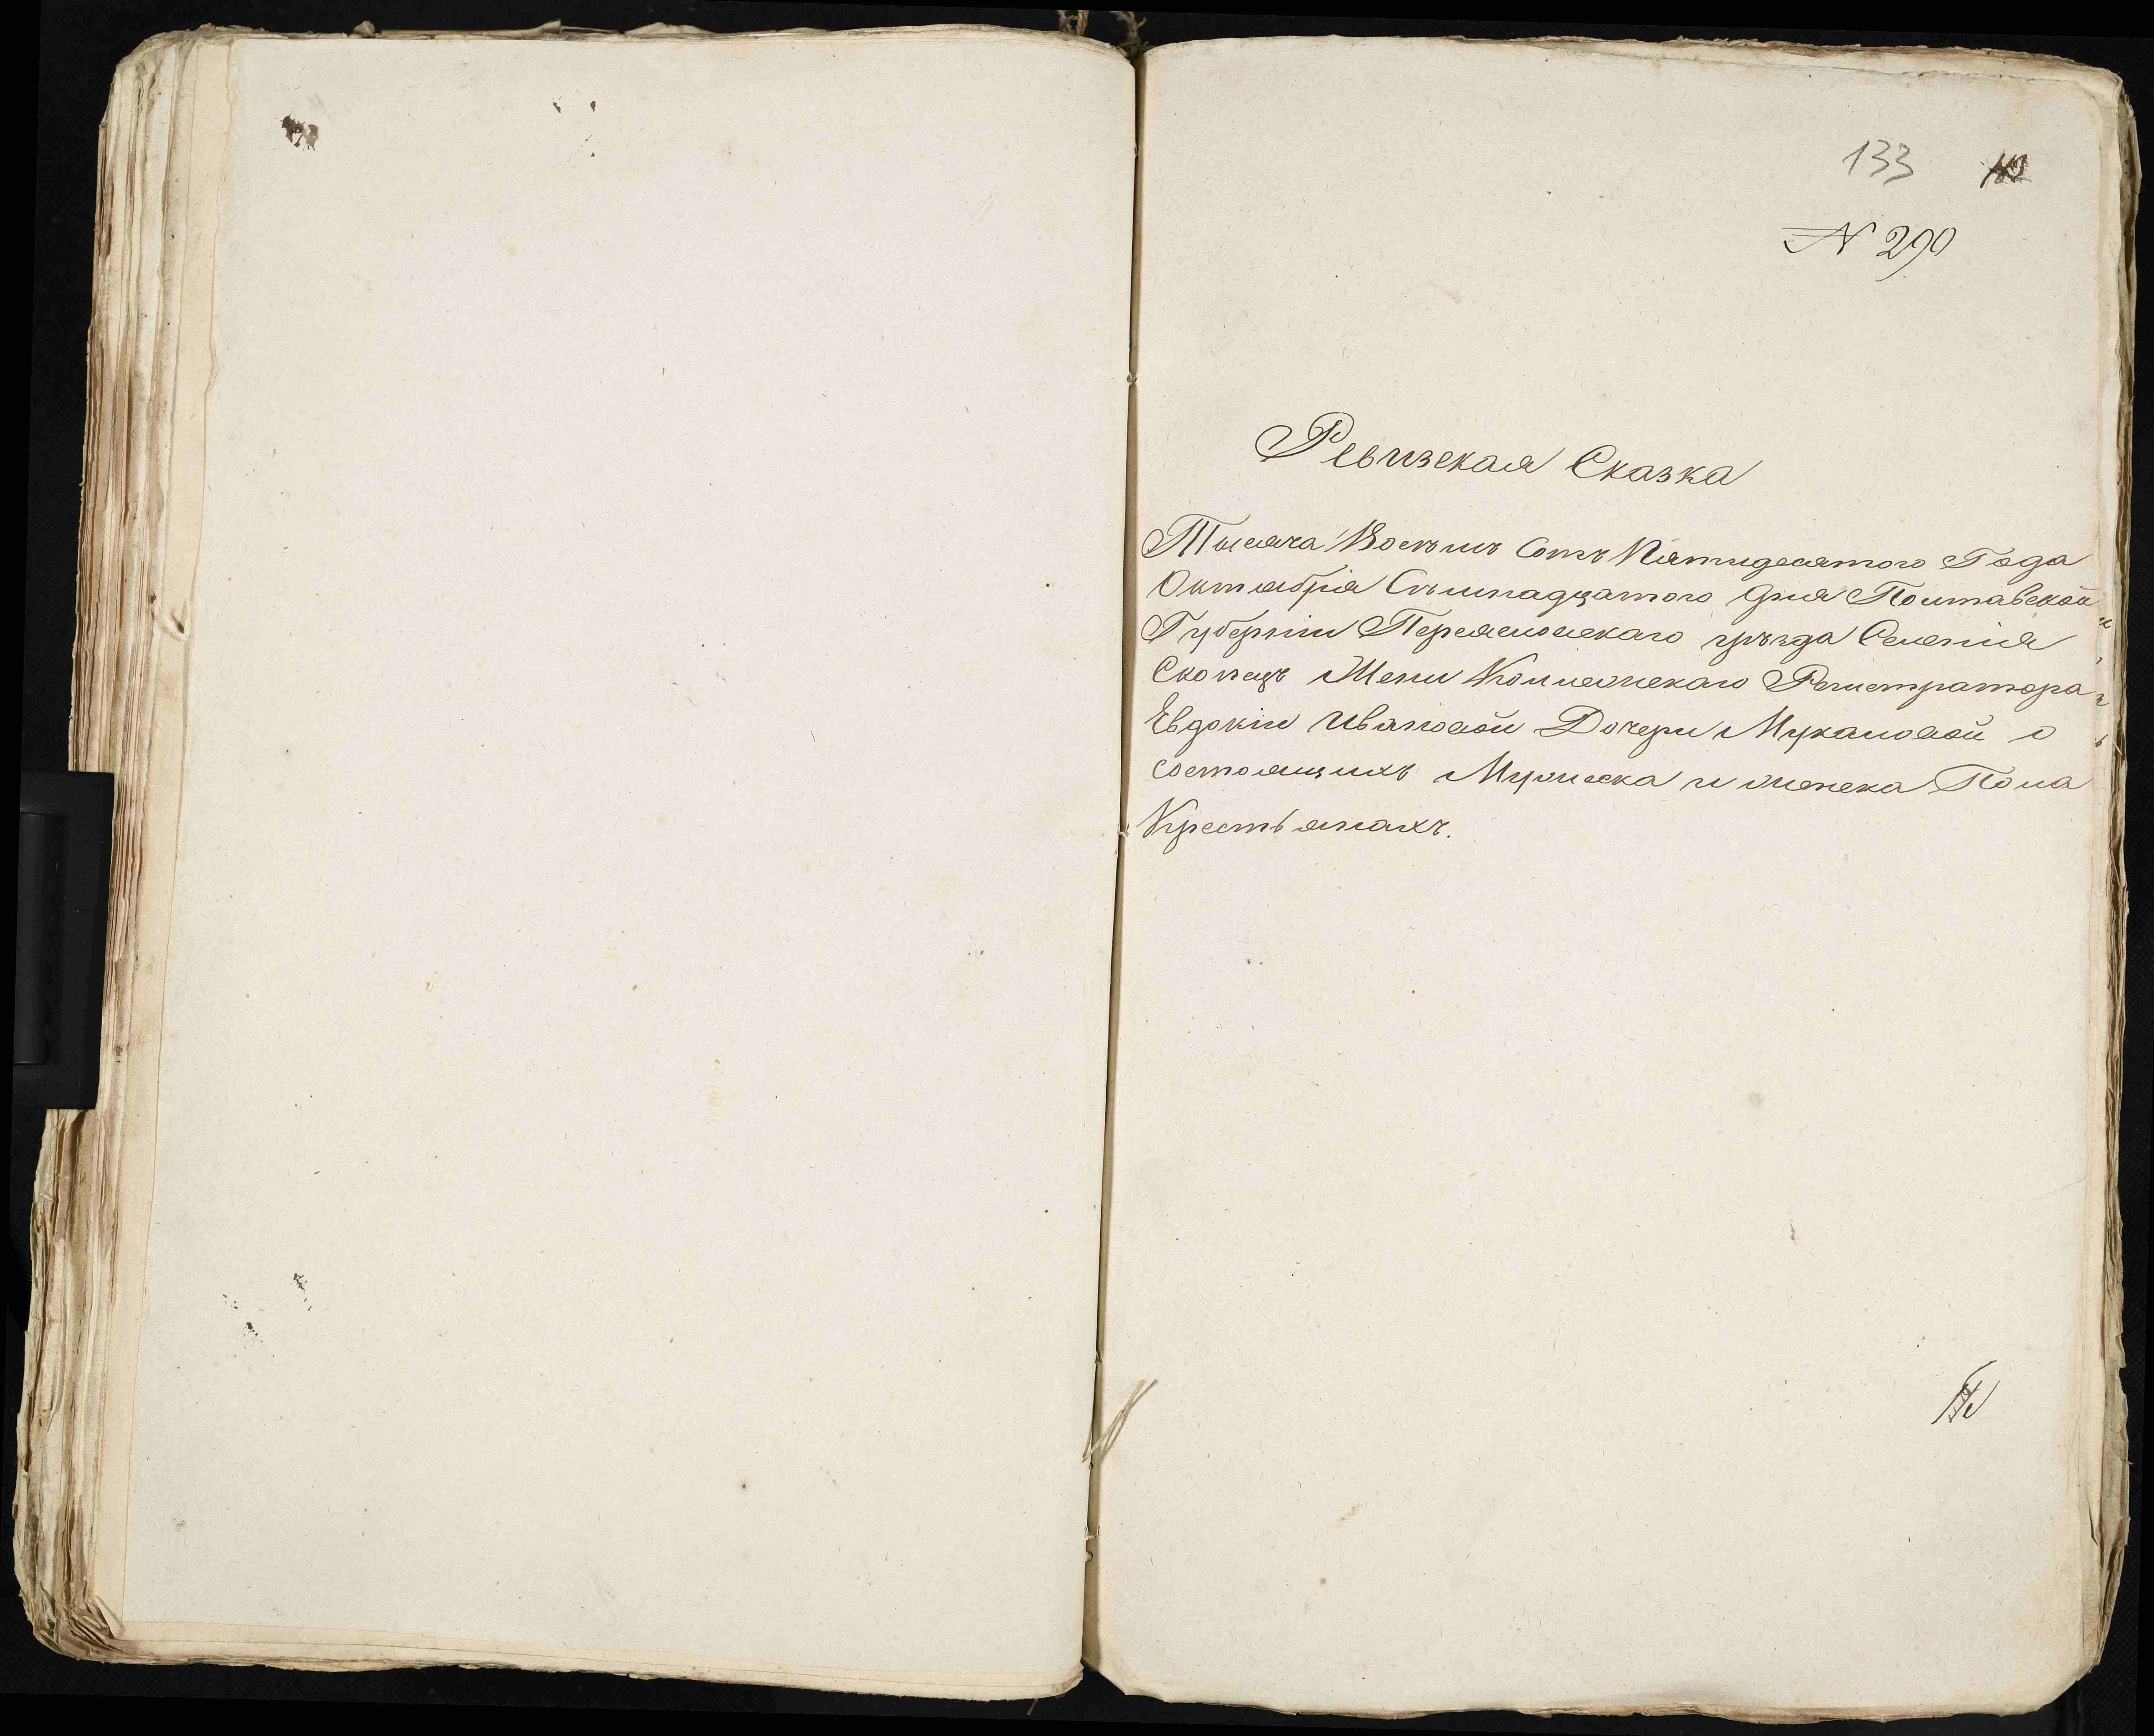 133
N 290
Ревизская Сказка
Тысяча Восѣмъ Сотъ Пятидесятого Года
Октября Сѣмнадцатого Дня Полтавской
Губерніи Переясловскаго уѣзда Селенія
Скопецъ Жены Коллежскаго Регистратора
Евдокіи Ивановой Дочери Мукаловой о
состоящихъ Мужеска и женска Пола
Крестьянахъ.